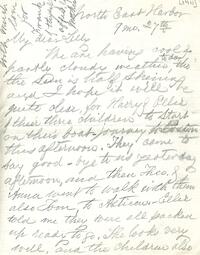 North East Harbor
Mon. 27th
My dear
We are having cool
partly cloudy weather to day
the sun is half shining
and I hope it will be
quite clear, for Harry &
their three children to start
on their boat journey
this afternoon. They came to
say good-bye to us yesterday
afternoon, and then Theo. &
Anna went to walk with them
also Tom, to
told me they were all packed
up ready to go. She looks very
well, and the children also